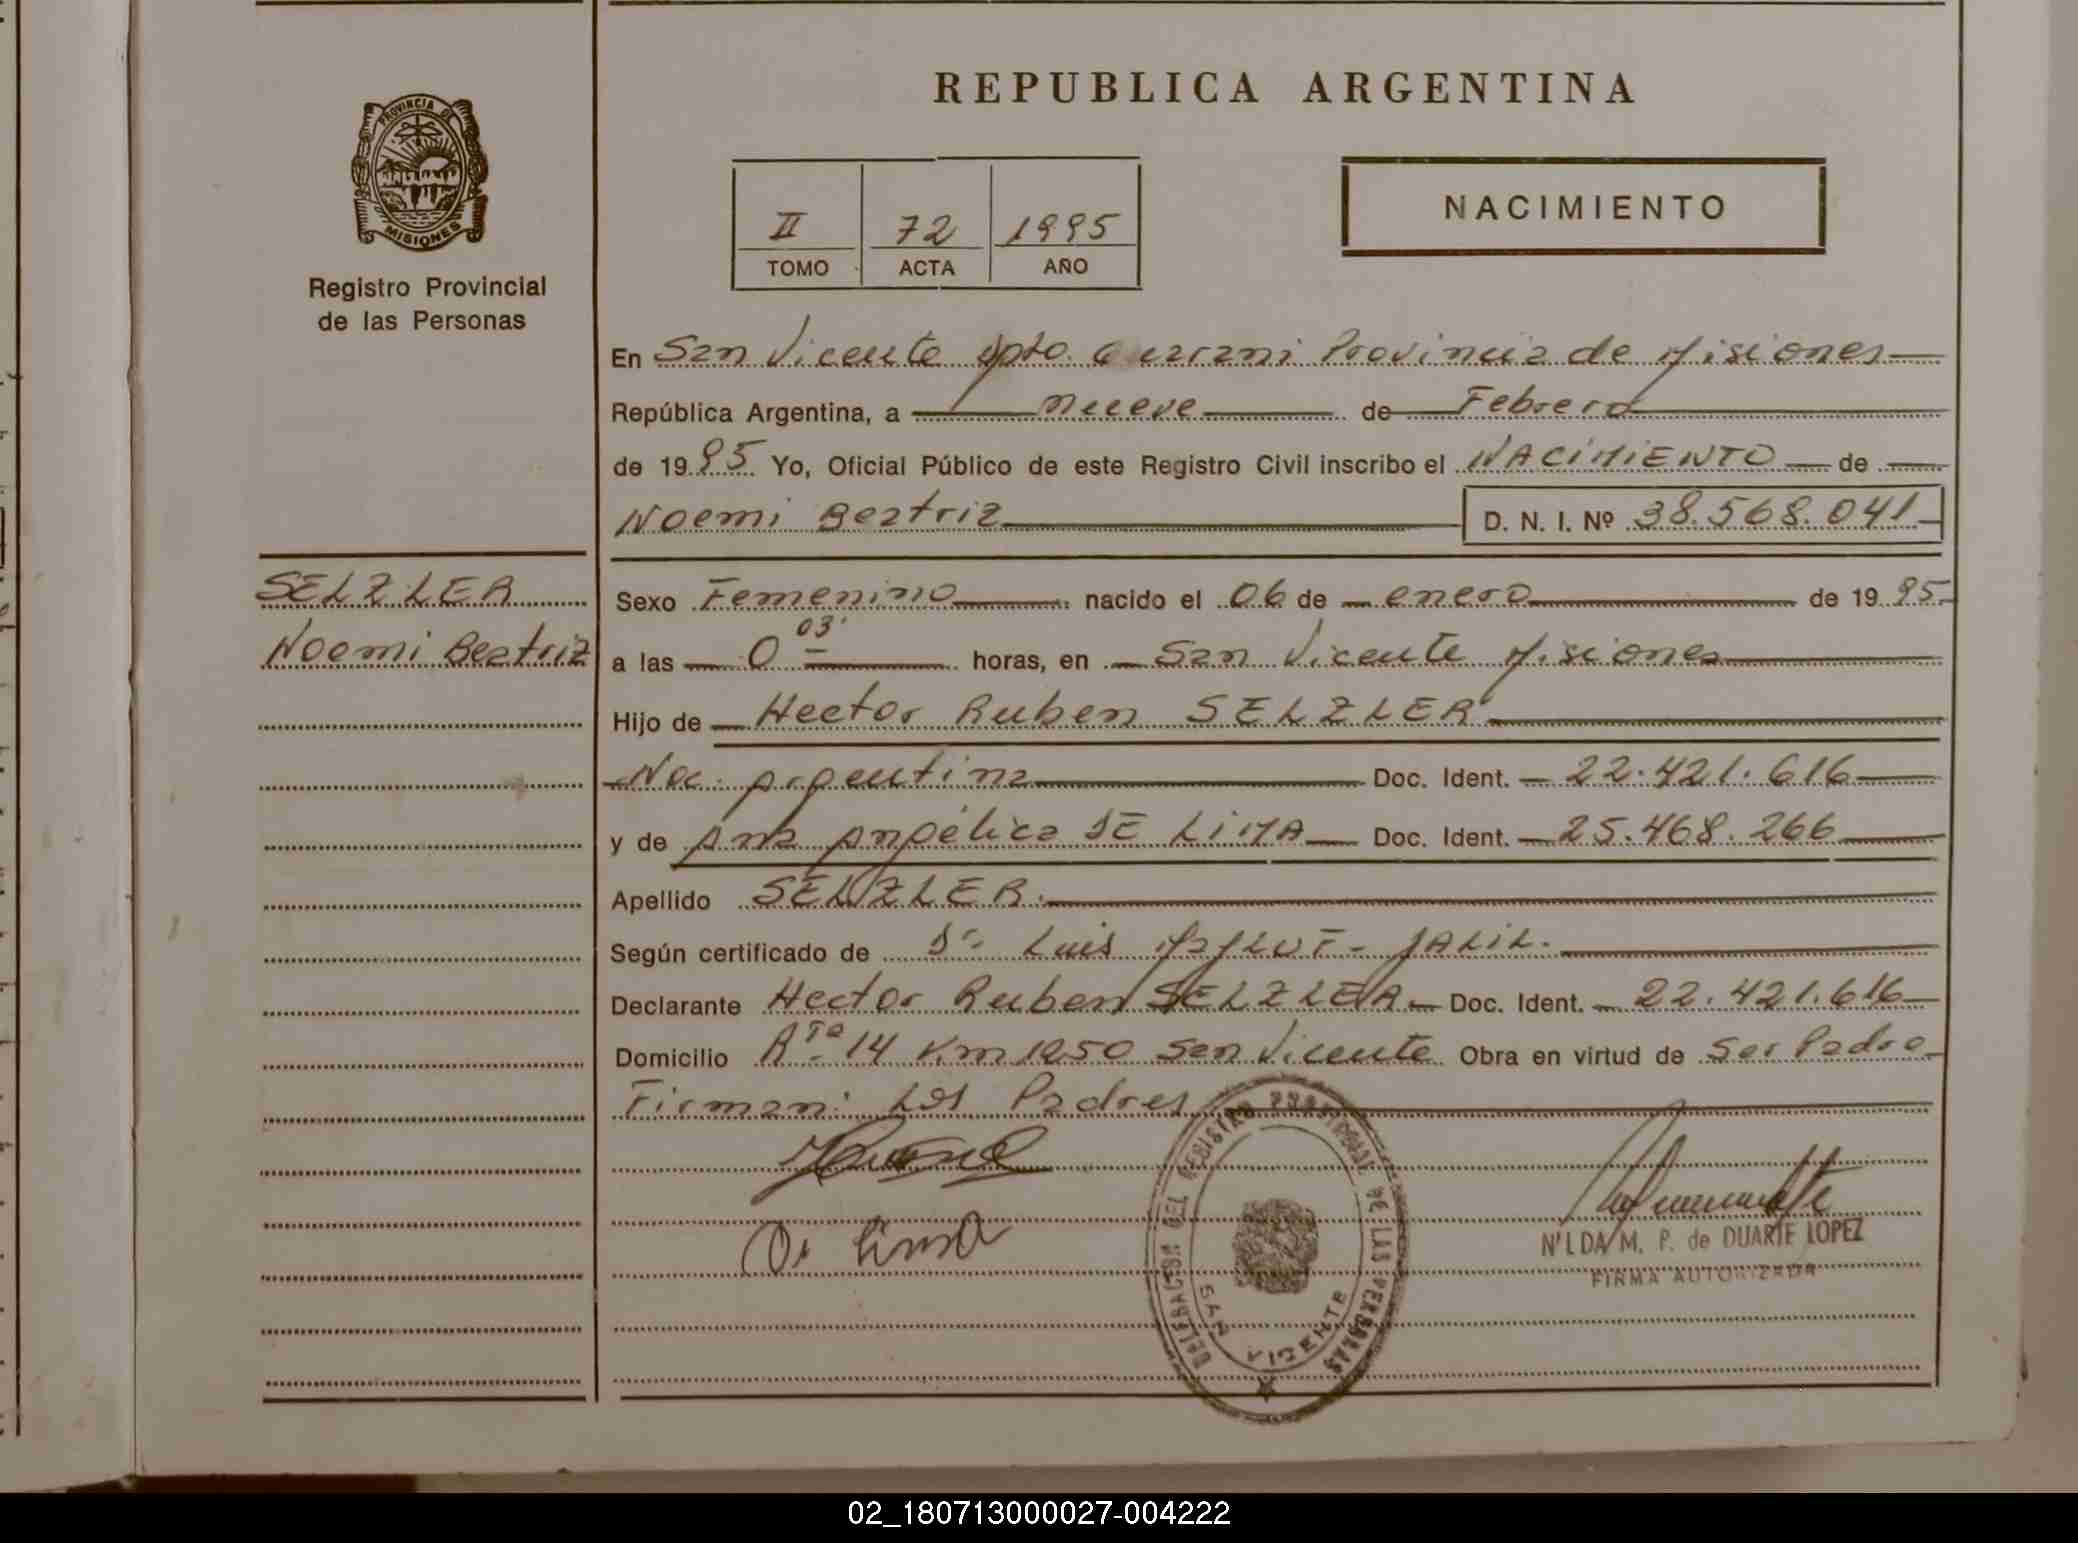 REPUBLICA ARGENTINA
PROVINCIA DE
MISIONES
Registro Provincial
de las Personas
II 72 1995
TOMO ACTA AÑO
NACIMIENTO
En San Vicente Dpto. Guarani Provincia de Misiones
República Argentina, a nueve de Febrero
de 1995 Yo, Oficial Público de este Registro Civil inscribo el NACIMIENTO de
Noemi Beatriz D. N. I. Nº 38.568.041
SELZLER
Noemi Beatriz
Sexo Femenino nacido el 06 de enero de 1995
a las 0 03' horas, en San Vicente Misiones
Hijo de Hector Ruben SELZLER
Nac. Argentina Doc. Ident. 22.421.616
y de Ana Angélica DE LIMA Doc. Ident. 25.468.266
Apellido SELZLER.
Según certificado de Dr. Luis JALIL.
Declarante Hector Ruben SELZLER Doc. Ident. 22.421.616
Domicilio Rta 14 Km 1250 San Vicente Obra en virtud de Ser Padre
Firman: Los Padres
De Lima
DELEGACION DEL REGISTRO PROVINCIAL DE LAS PERSONAS
SAN VICENTE
NILDA M. P. de DUARTE LOPEZ
FIRMA AUTORIZADA
02_180713000027-004222